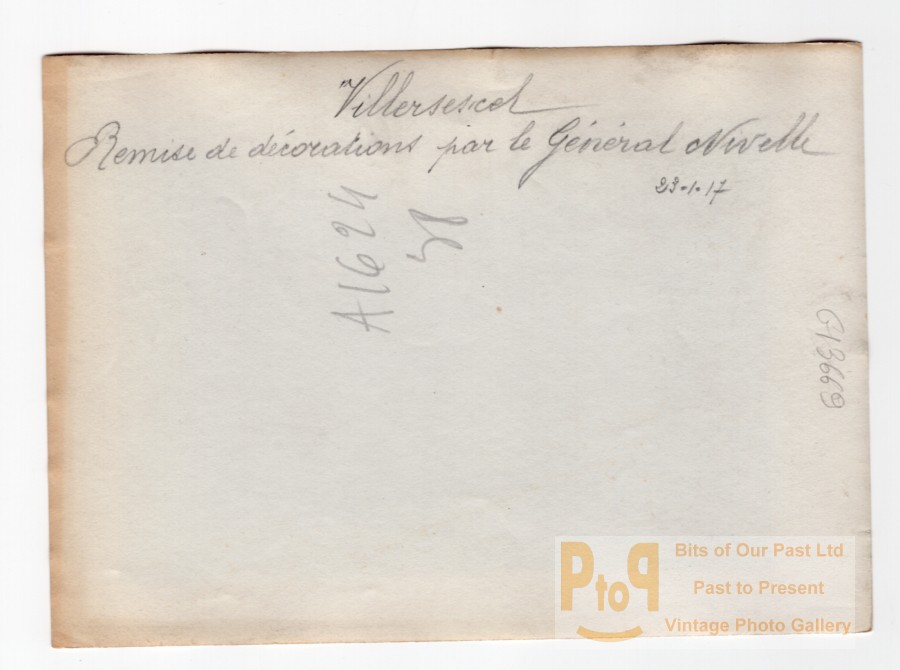 Villersexel
Remise de décorations par le Général Nivelle
23-1-17
A1624
38
G13669
PtoP
Bits of Our Past Ltd
Past to Present
Vintage Photo Gallery